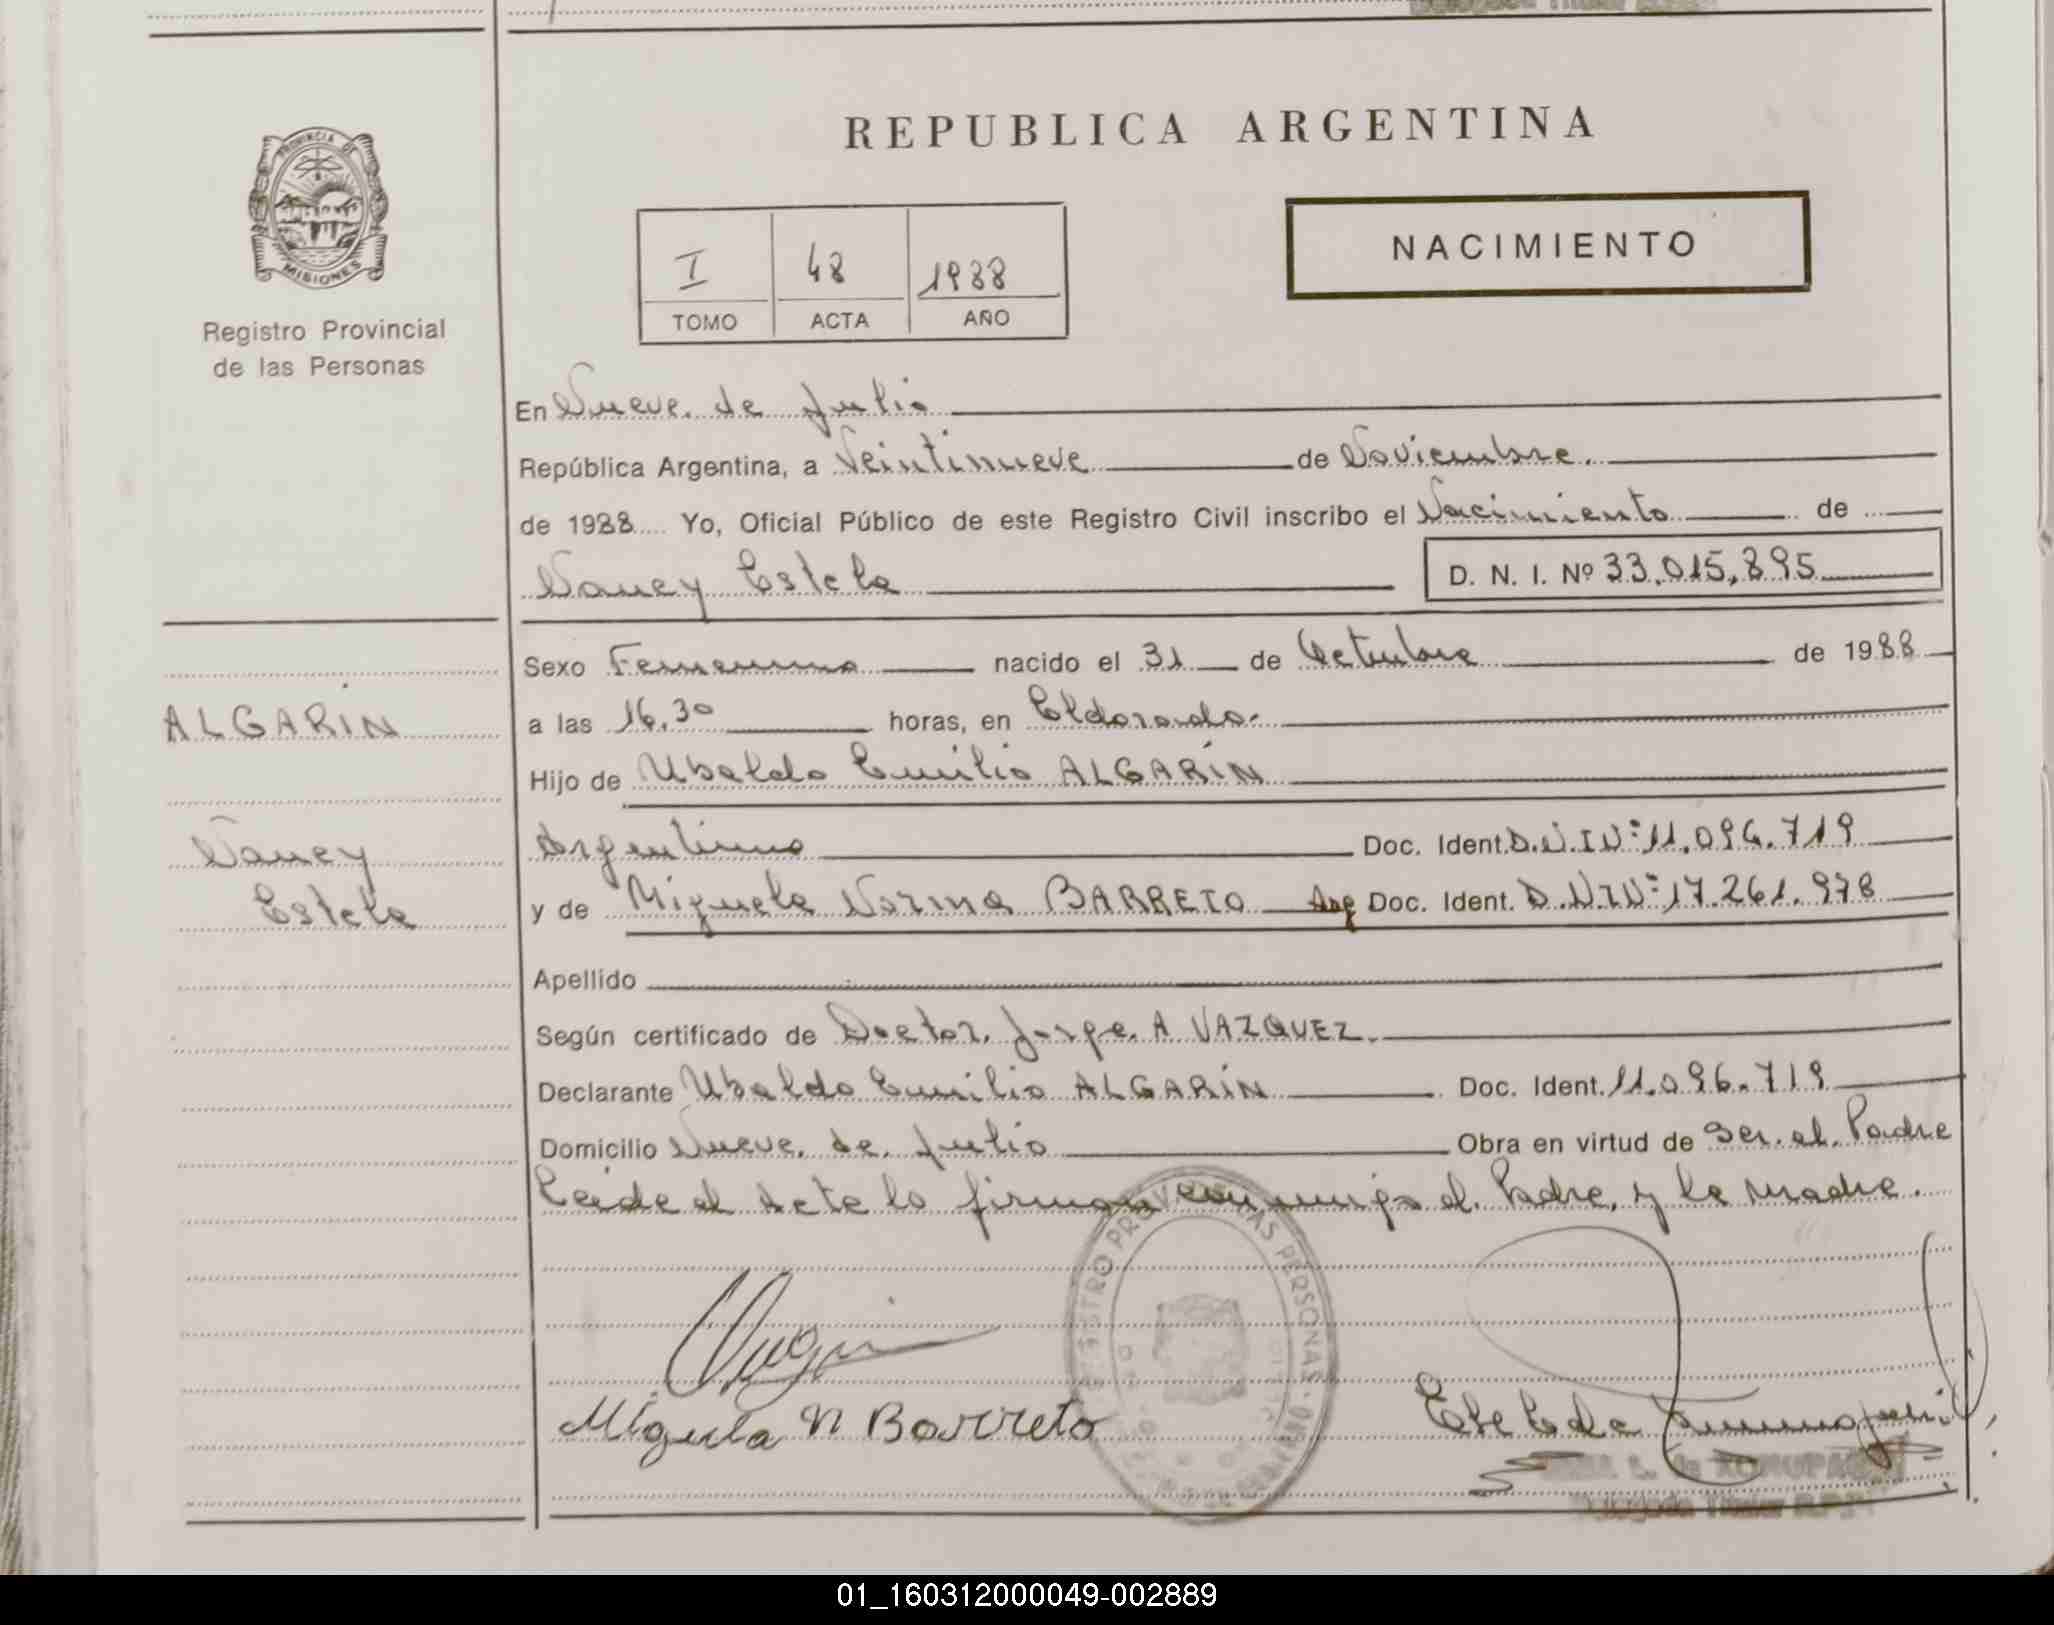 REPUBLICA ARGENTINA
PROVINCIA DE
MISIONES
Registro Provincial
de las Personas
I 48 1988
TOMO ACTA AÑO
NACIMIENTO
En Nueve de Julio
República Argentina, a Veintinueve de Noviembre.
de 1988 Yo, Oficial Público de este Registro Civil inscribo el Nacimiento de
Nancy Estela D. N. I. Nº 33.015.895
Sexo Femenino nacido el 31 de Octubre de 1988
ALGARIN
a las 16,30 horas, en Eldorado.
Hijo de Ubaldo Emilio ALGARÍN
Nancy
Estela
Argentino Doc. Ident. D.N.I Nº 11.096.719
y de Miguela Norma BARRETO Arg Doc. Ident. D.N.I Nº 17.261.978
Apellido
Según certificado de Doctor. Jorge. A VAZQUEZ.
Declarante Ubaldo Emilio ALGARÍN Doc. Ident. 11.096.719
Domicilio Nueve de Julio Obra en virtud de Ser. el. Padre
Leida el acta la firman conmigo el Padre, y la madre.
REGISTRO PROV DE LAS PERSONAS
Miguela N Barreto
01_160312000049-002889